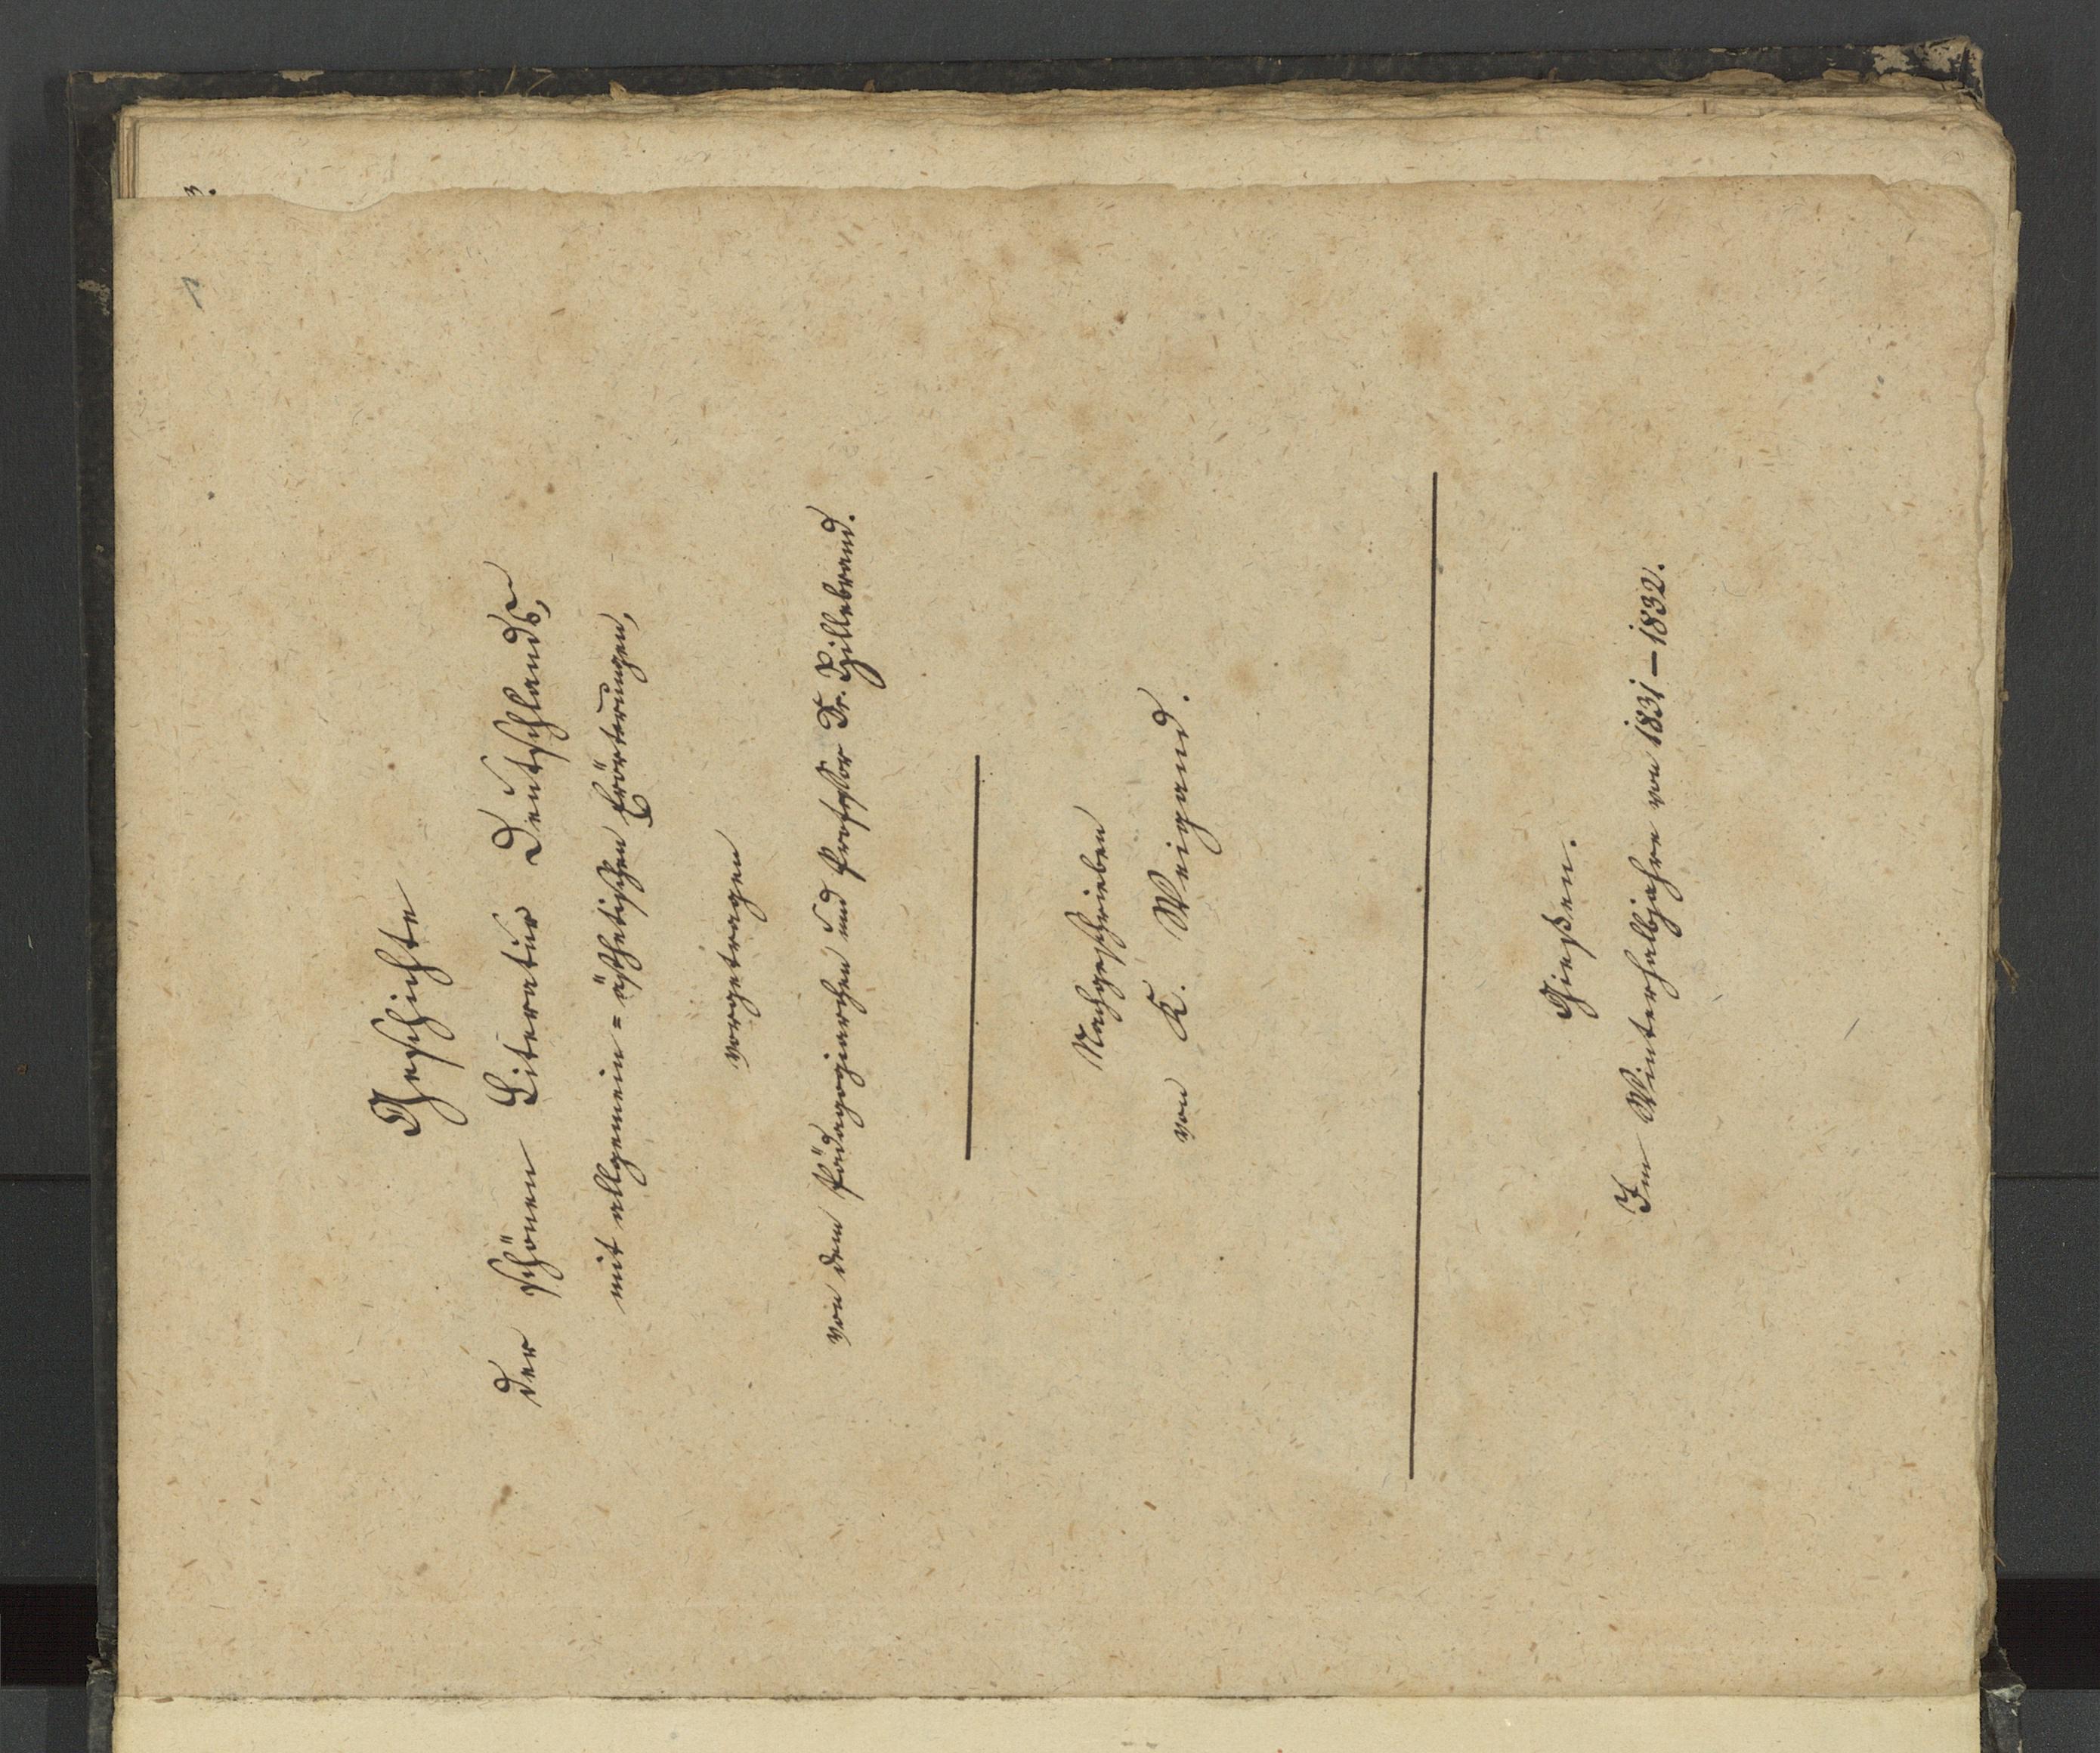 Geschichte
der schönen Literatur Deutschlands,
mit allgemein=ästhetischen Erörterungen,
vorgetragen
von dem Pädagogiarchen und Professor Dr. Hillebrand.
Nachgeschrieben
von K. Weigand.
Gießen.
Im Winterhalbjahre von 1831–1832.